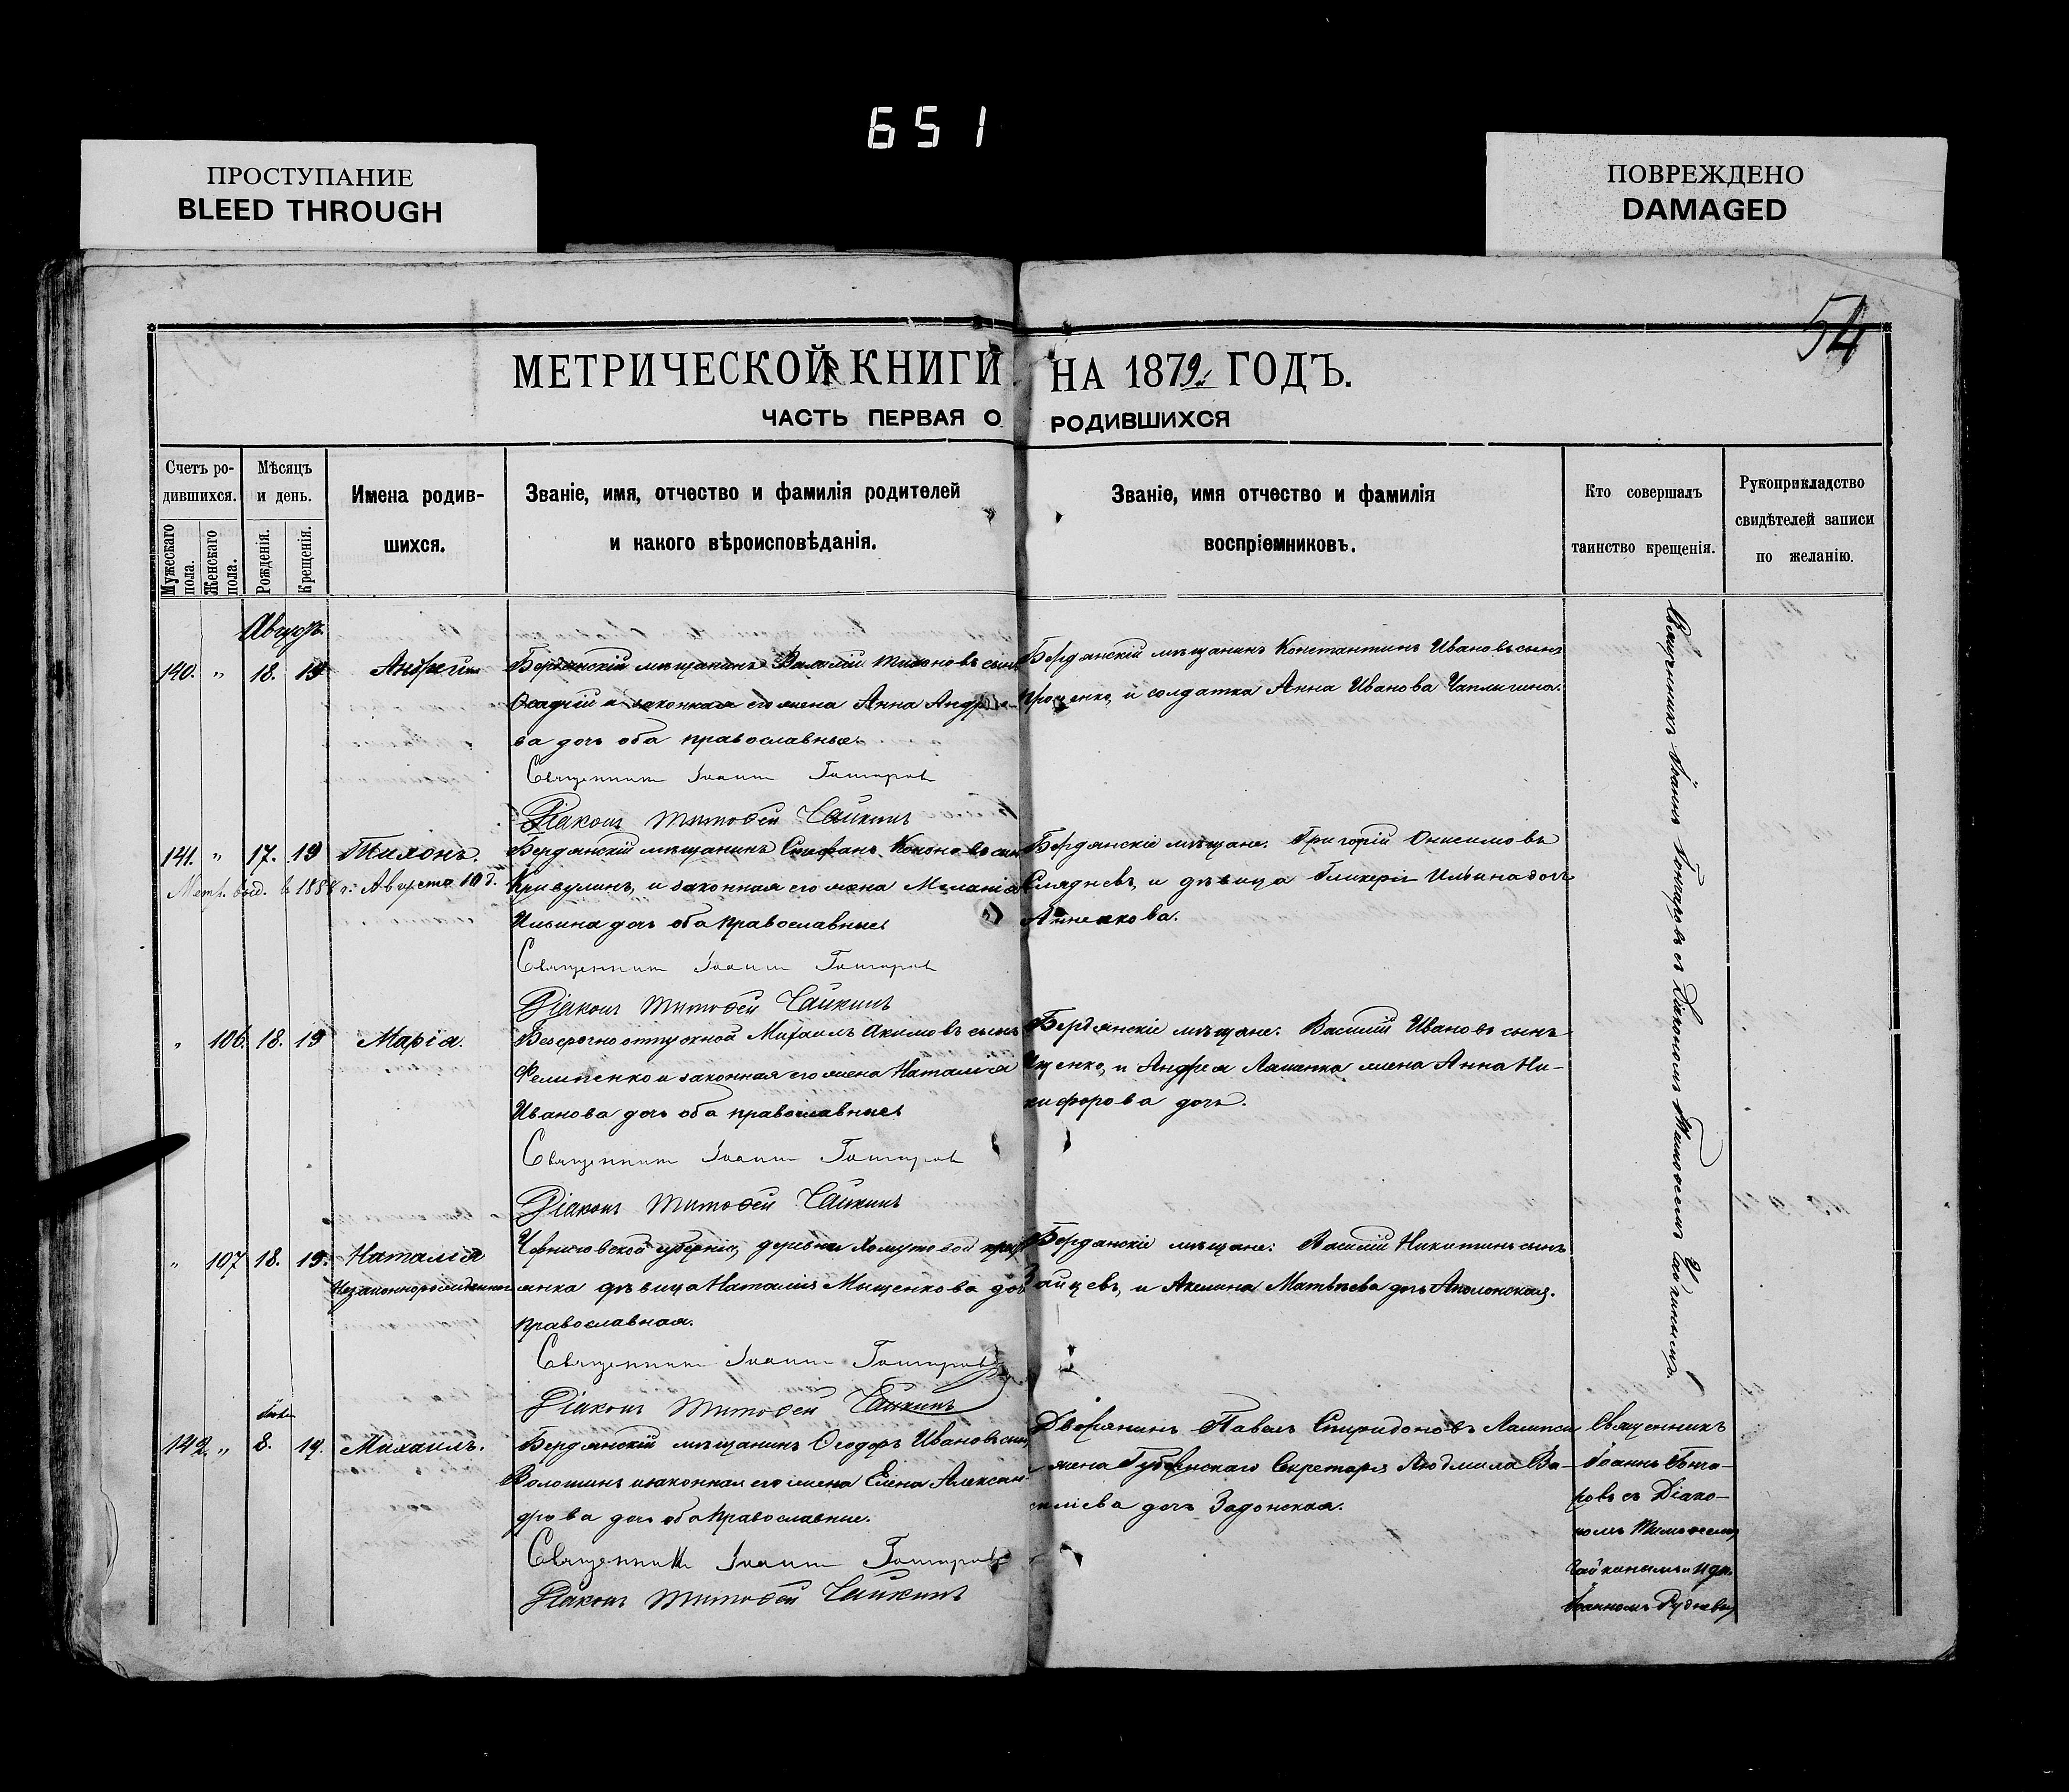 651
ПРОСТУПАНИЕ
BLEED THROUGH
ПОВРЕЖДЕНО
DAMAGED
54
МЕТРИЧЕСКОЙ КНИГИ НА 1879 ГОДЪ.
ЧАСТЬ ПЕРВАЯ О РОДИВШИХСЯ
Счетъ ро-
дившихся.
Мужескаго пола.
Женскаго пола.
Мѣсяцъ
и день.
Рожденія.
Крещенія.
Имена родив-
шихся.
Званіе, имя, отчество и фамилія родителей
и какого вѣроисповѣданія.
Званіе, имя отчество и фамилія
воспріемниковъ.
Кто совершалъ
таинство крещенія.
Рукоприкладство
свидѣтелей записи
по желанію.
Августъ
140. " 18. 19 Андрей
Бердянскій мѣщанинъ Тихоновъ сынъ
и законная его жена Анна Андрее-
ва дочь оба православные.
Священникъ Іоаннъ Гончаровъ
Діаконъ Тимофей Чайкинъ
Бердянскій мѣщанинъ Константинъ Ивановъ сынъ
Проценко, и солдатка Анна Иванова Чаплыгина.
141. " 17. 19 Тихонъ.
Метр. выд. в 1888 г. Августа 10 д.
Бердянскій мѣщанинъ Стефанъ Кононовъ сынъ
Кривулинъ, и законная его жена Меланія
Ильина дочь оба православные
Священникъ Іоаннъ Гончаровъ
Діаконъ Тимофей Чайкинъ
Бердянскіе мѣщане: Григорій Онисимовъ
Слядневъ, и дѣвица Гликерія Ильина дочь
Анненкова.
" 106. 18. 19 Марія.
Безсрочноотпускной Михаилъ Акимовъ сынъ
Филипенко и законная его жена Наталія
Иванова дочь оба православные
Священникъ Іоаннъ Гончаровъ
Діаконъ Тимофей Чайкинъ
Бердянскіе мѣщане: Василій Ивановъ сынъ
Ищенко, и Андрея жена Анна Ни-
кифорова дочь.
" 107 18. 19. Наталія
Незаконнорожденная
Черниговской губерніи, деревни Хомутовой крест
янка дѣвица Наталія Мищенкова дочь
православная.
Священникъ Іоаннъ Гончаровъ
Діаконъ Тимофей Чайкинъ
Бердянскіе мѣщане: Василій Никитинъ сынъ
Зайцевъ, и Акелина Матвѣева дочь Аполонская.
Священникъ Іоаннъ Гончаровъ съ Діакономъ Тимофеемъ Чайкинымъ.
142. " 8. 19. Михаилъ.
Бердянскій мѣщанинъ Ѳеодоръ Ивановъ сынъ
Волошинъ и законная его жена Елена Алексан-
дрова дочь оба православные.
Священникъ Іоаннъ Гончаровъ
Діаконъ Тимофей Чайкинъ
Дворянинъ Павелъ Спиридоновъ
жена Губернскаго Секретаря Людмила Ва-
силіева дочь Задонская.
Священникъ
Іоаннъ Гонча-
ровъ съ Діако-
номъ Тимофеемъ
Чайкинымъ и
Іоанномъ